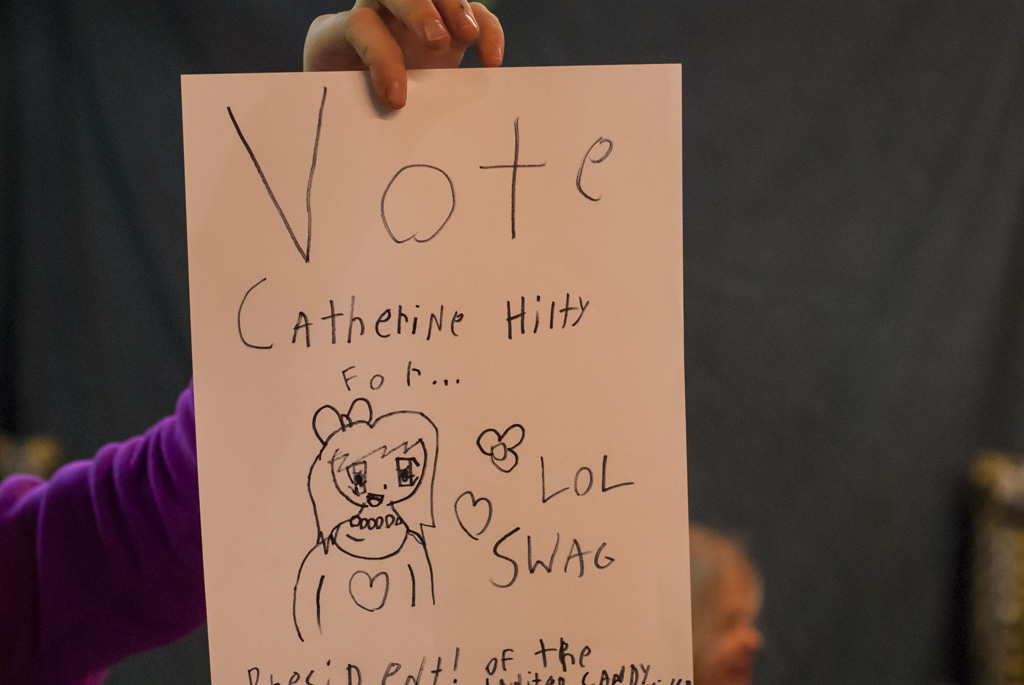 Vote
CAtheriNe Hilty
For...
LOL
SWAG
PresidENt! OF the
UNited CANDY